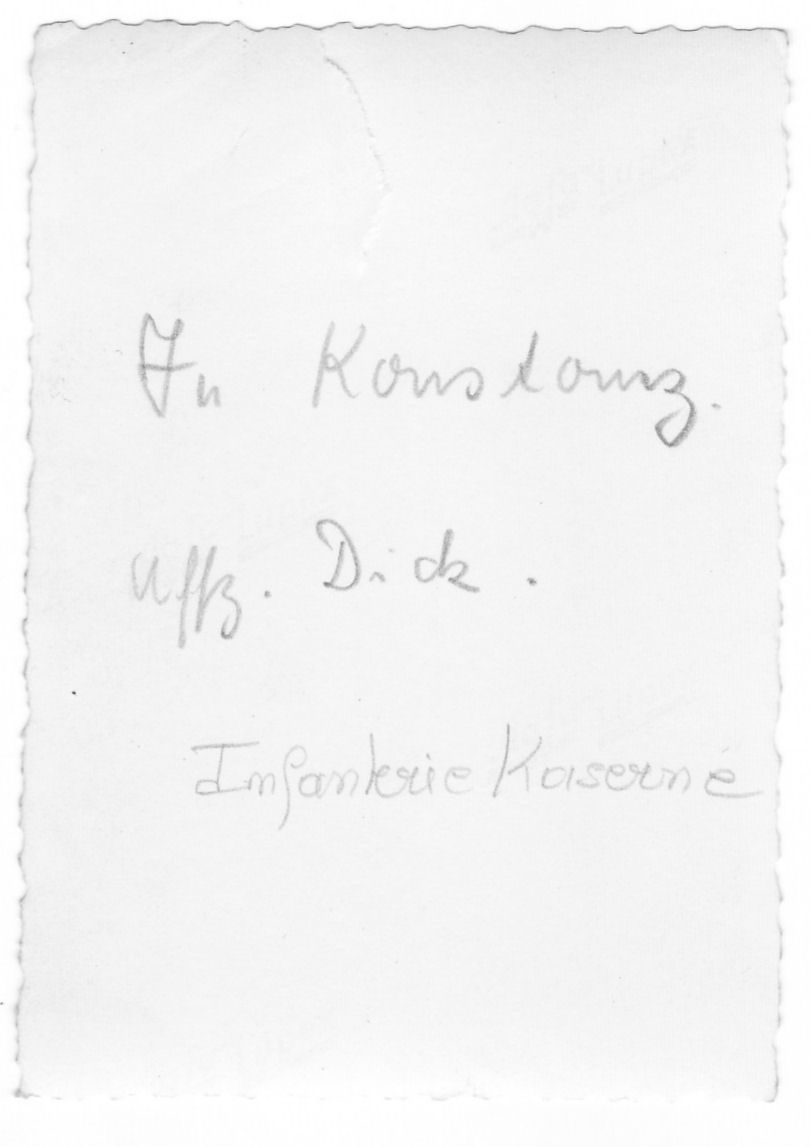 In Konstanz.
Uffz. Dick.
Infanterie Kaserne